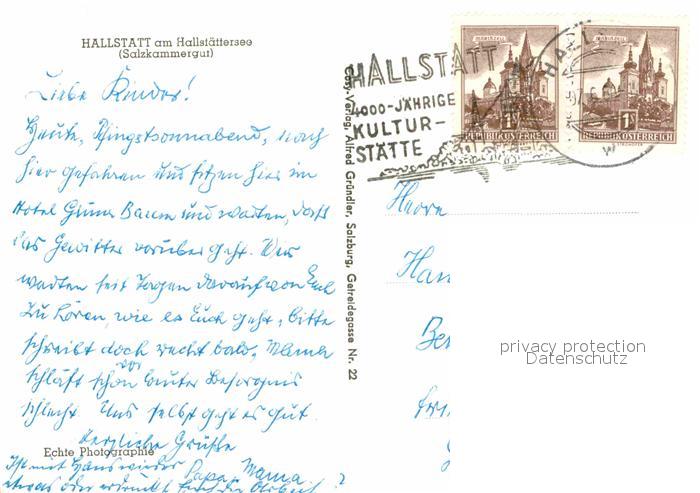 HALLSTATT am Hallstättersee
(Salzkammergut)
Liebe Kinder!
Heute, Pfingstsonnabend, nach
hier gefahren und sitzen hier im
Hotel Grüner Baum und warten, daß
das Gewitter vorüber geht. Wir
warten seit Tagen darauf von Euch
zu hören, wie es Euch geht, bitte
schreibt doch recht bald, Mama
schläft schon vor lauter Besorgnis
schlecht. Uns selbst geht es gut.
Herzliche Grüße
Echte Photographie
Papa, Mama
Ist mit Hans wieder
etwas oder erdrückt Euch die Arbeit?
Cosy-Verlag, Alfred Gründler, Salzburg, Getreidegasse Nr. 22
HALLSTATT
4000-JÄHRIGE
KULTUR-
STÄTTE
MARIAZELL
1S
REPUBLIK ÖSTERREICH
MARIAZELL
1S
REPUBLIK ÖSTERREICH
HALL
Herrn
Han
Ber
privacy protection
Datenschutz